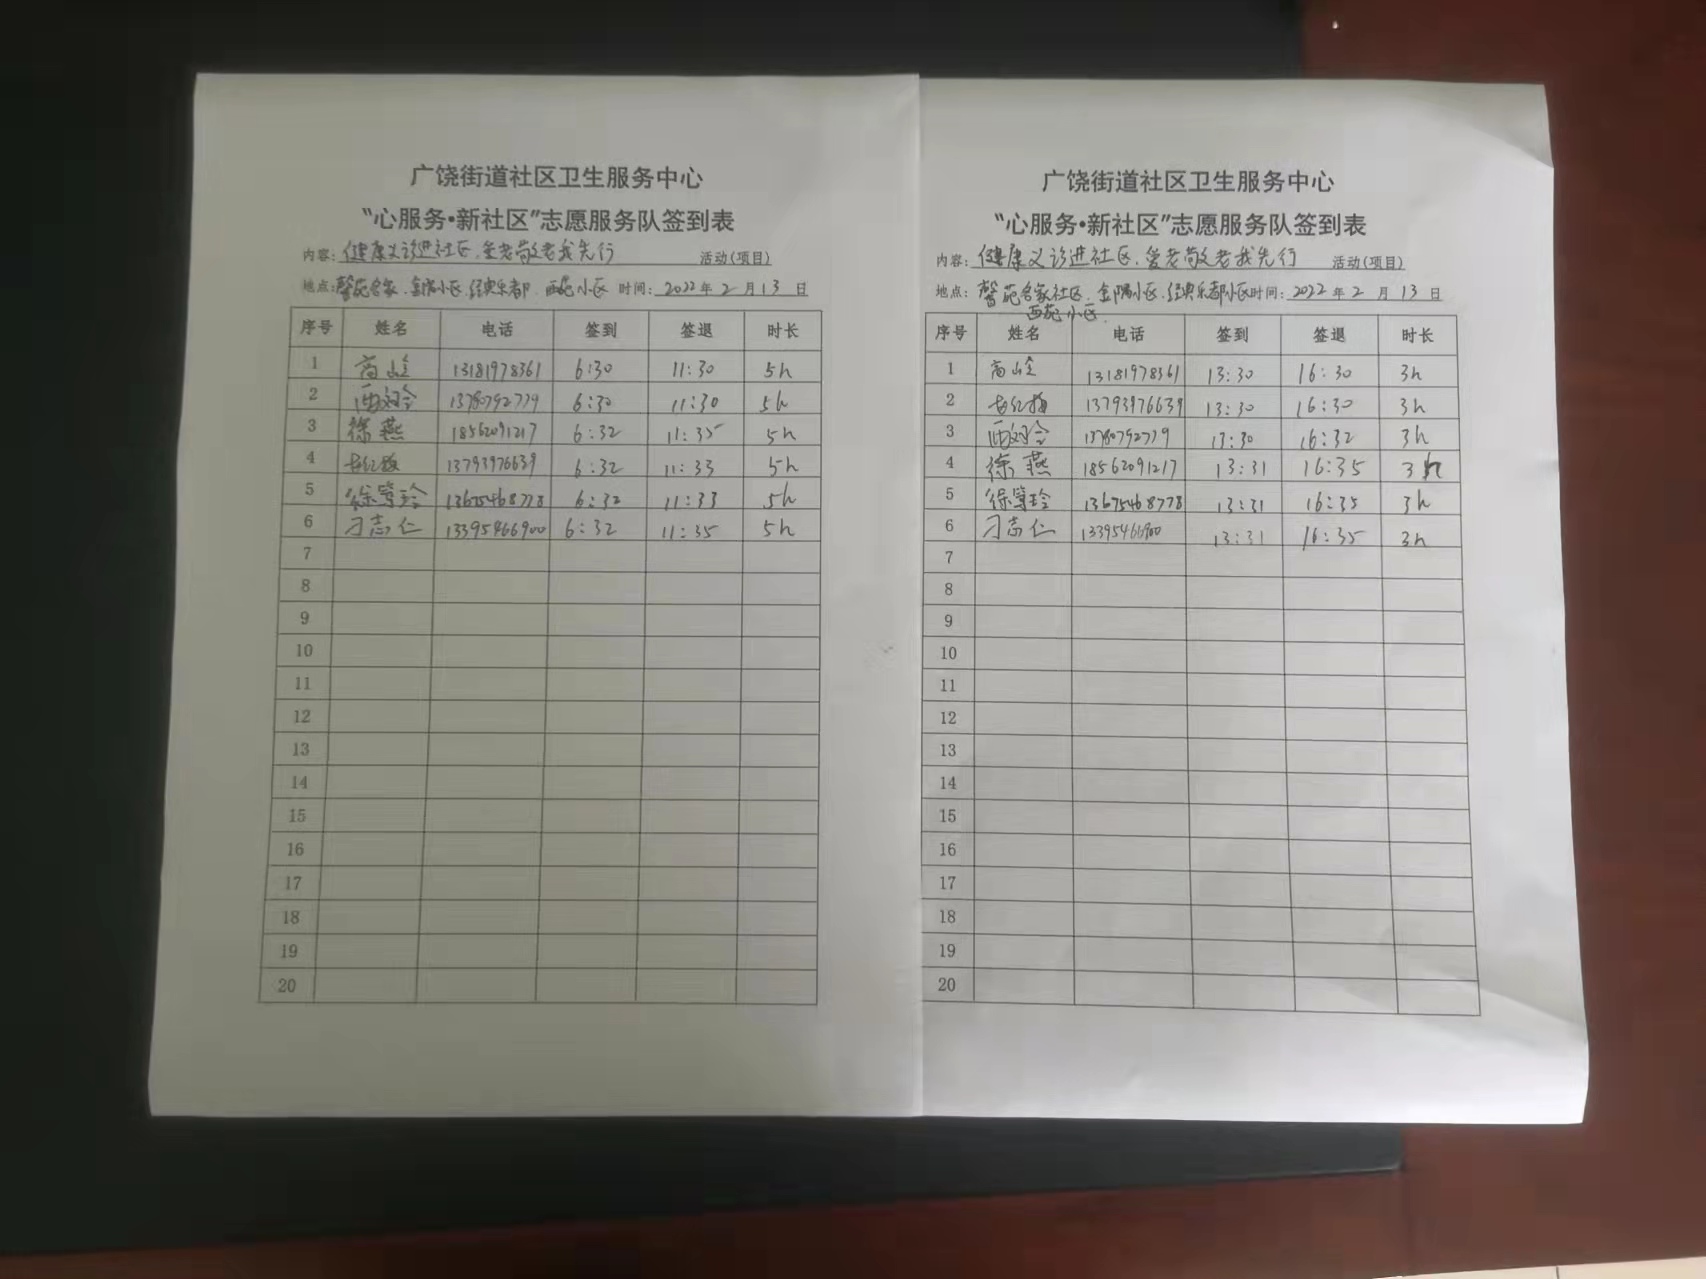 广饶街道社区卫生服务中心
“心服务•新社区”志愿服务队签到表
内容: 健康义诊进社区、爱老敬老我先行 活动(项目)
地点: 馨苑名家、金隅小区、经典乐都、西苑小区 时间: 2022年2月13日
序号 姓名 电话 签到 签退 时长
1 13181978361 6:30 11:30 5h
2 13780792779 6:30 11:30 5h
3 徐燕 18562091217 6:32 11:35 5h
4 13793976639 6:32 11:33 5h
5 13675468778 6:32 11:33 5h
6 刁志仁 13395466900 6:32 11:35 5h
7
8
9
10
11
12
13
14
15
16
17
18
19
20
广饶街道社区卫生服务中心
“心服务•新社区”志愿服务队签到表
内容: 健康义诊进社区、爱老敬老我先行 活动(项目)
地点: 馨苑名家社区、金隅小区、经典乐都小区 时间: 2022年2月13日
西苑小区
序号 姓名 电话 签到 签退 时长
1 13181978361 13:30 16:30 3h
2 13793976639 13:30 16:30 3h
3 13780792779 13:30 16:32 3h
4 徐燕 18562091217 13:31 16:35 3h
5 13675468778 13:31 16:35 3h
6 刁志仁 13395466900 13:31 16:35 3h
7
8
9
10
11
12
13
14
15
16
17
18
19
20